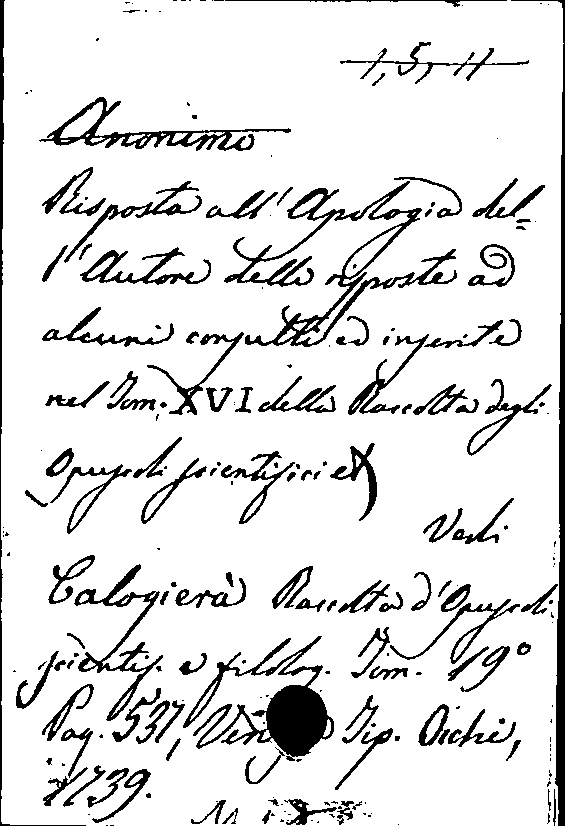 1, 5, 11
Anonimo
Risposta all' Apologia del=
l'Autore delle risposte ad
alcuni consulti ed inserite
nel Tom. XVI della Raccolta degli
Opuscoli scientifici e
Vedi
Calogierà Raccolta d'Opuscoli
scientif. e filolog. Tom. 19°
Pag. 537, Tip. Occhi,
1739.